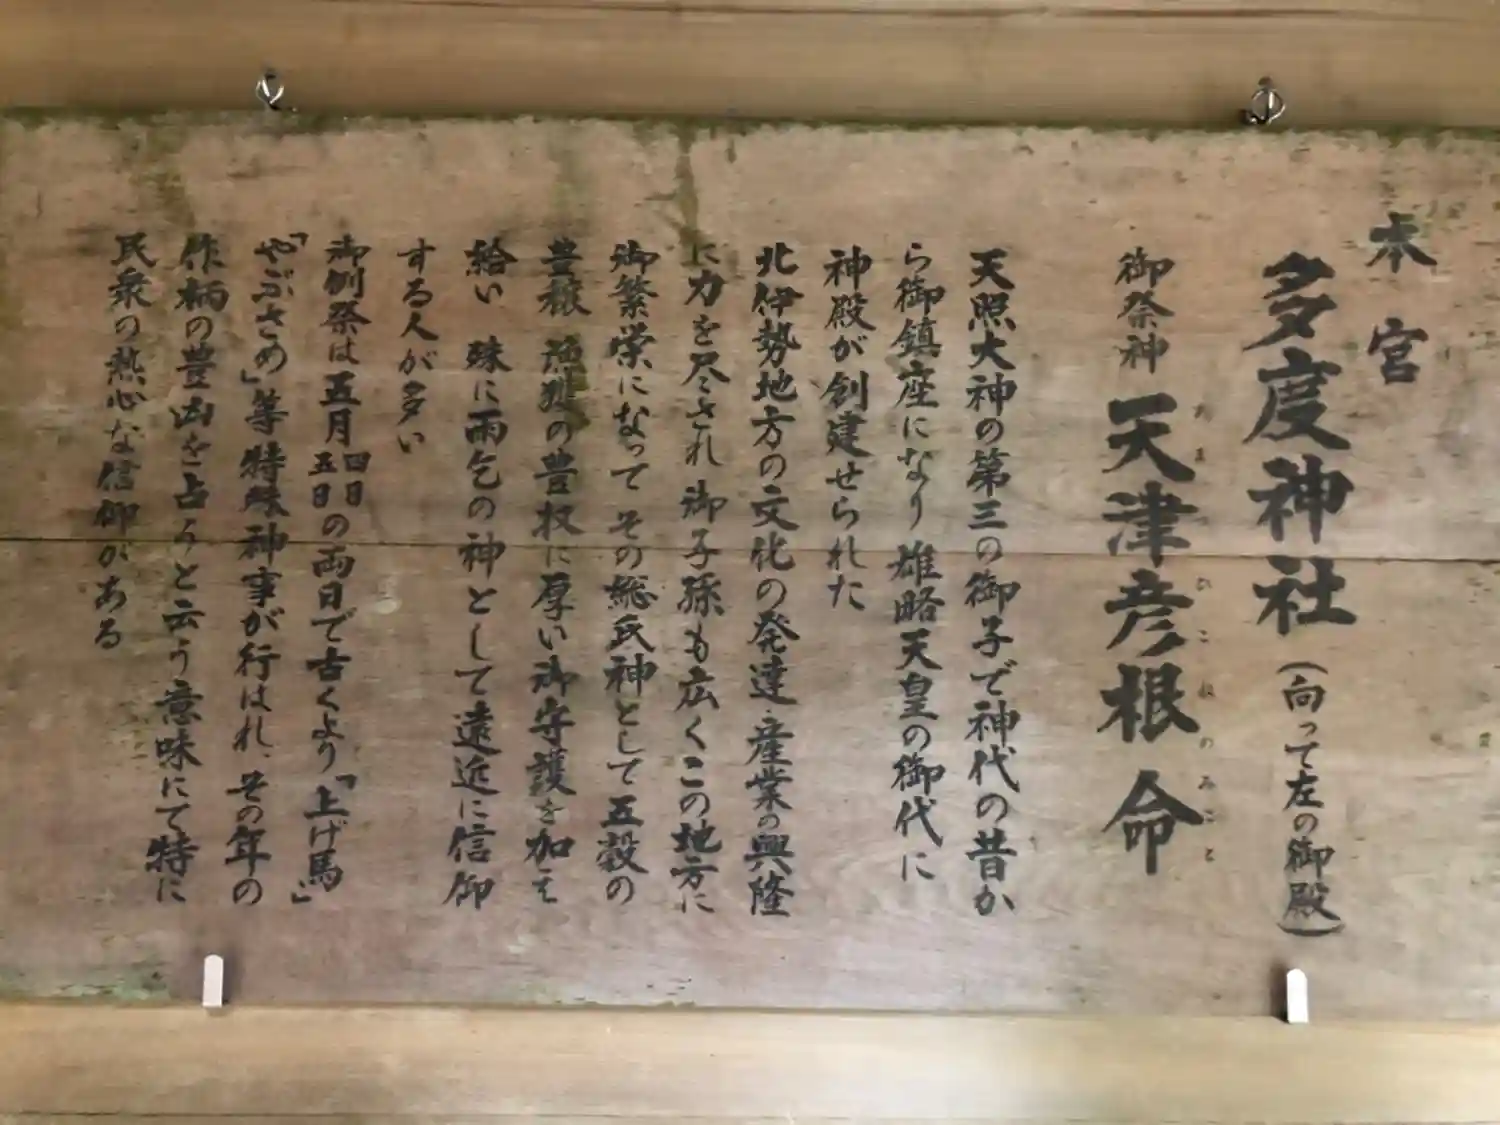 本宮
多度神社（向って左の御殿）
御祭神 天津彦根命
あまつひこねのみこと
天照大神の第三の御子で神代の昔か
ら御鎮座になり 雄略天皇の御代に
神殿が創建せられた
北伊勢地方の文化の発達・産業の興隆
に力を尽され 御子孫も広くこの地方に
御繁栄になって その総氏神として五穀の
豊穣 漁獲の豊収に厚い御守護を加え
給い 殊に雨乞の神として遠近に信仰
する人が多い
御例祭は五月四日五日の両日で古くより「上げ馬」
「やぶさめ」等特殊神事が行はれ、その年の
作柄の豊凶を占うと云う意味にて特に
民衆の熱心な信仰がある